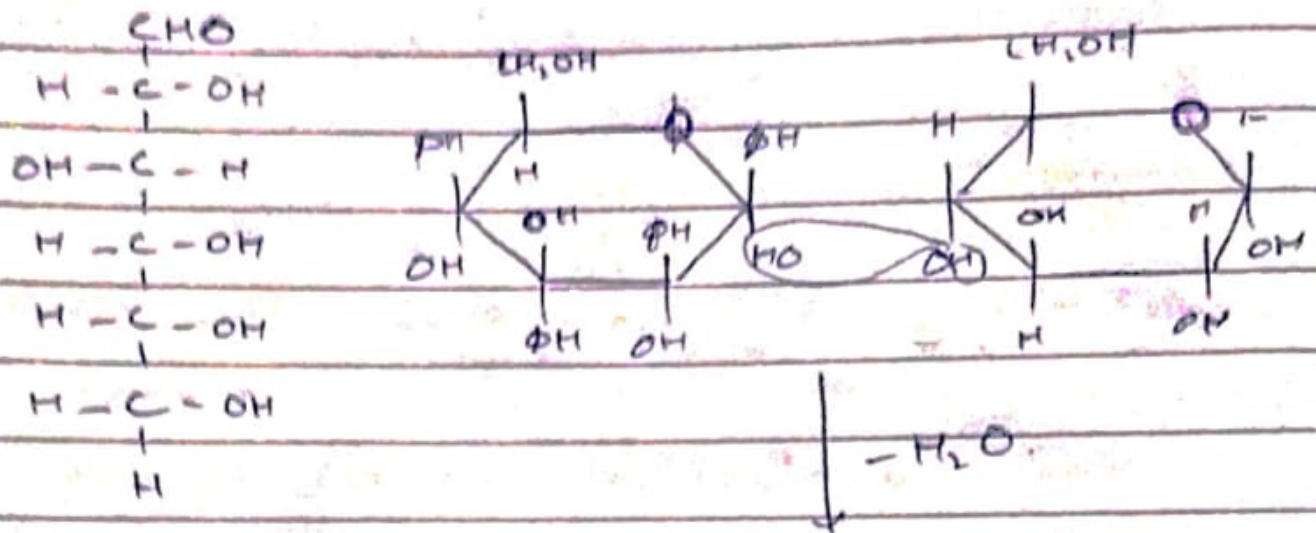 CHO
H - C - OH
OH - C - H
H - C - OH
H - C - OH
H - C - OH
H
CH2OH
O
H
OH
OH
HO
OH
CH2OH
H
O
OH
H
OH
OH
H
OH
- H2O